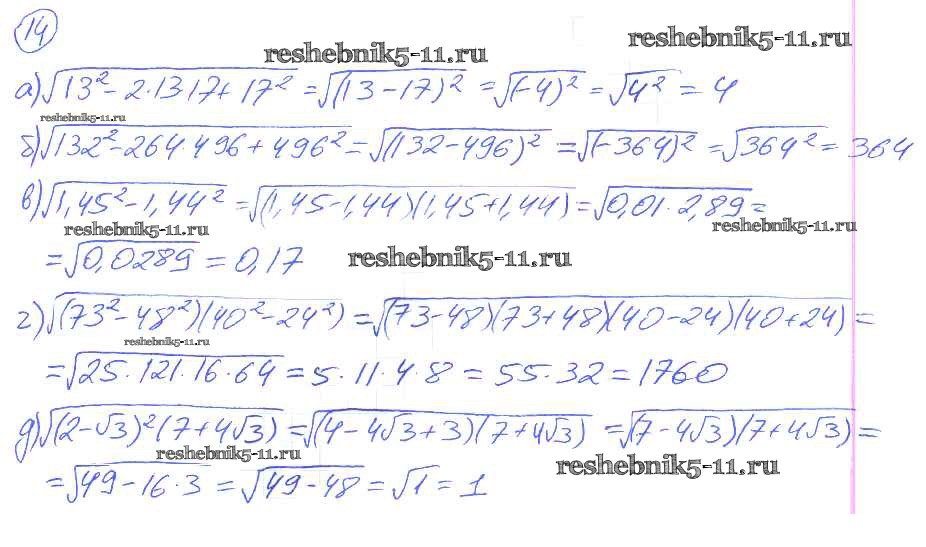 14
reshebnik5-11.ru
reshebnik5-11.ru
а) √(13² - 2·13·17 + 17²) = √((13-17)²) = √((-4)²) = √(4²) = 4
reshebnik5-11.ru
б) √(132² - 264·496 + 496²) = √((132-496)²) = √((-364)²) = √(364²) = 364
в) √(1,45² - 1,44²) = √((1,45-1,44)(1,45+1,44)) = √(0,01·2,89) =
reshebnik5-11.ru
reshebnik5-11.ru
= √(0,0289) = 0,17
reshebnik5-11.ru
г) √((73² - 48²)(40² - 24²)) = √((73-48)(73+48)(40-24)(40+24)) =
reshebnik5-11.ru
= √(25·121·16·64) = 5·11·4·8 = 55·32 = 1760
д) √((2-√3)²(7+4√3)) = √((4-4√3+3)(7+4√3)) = √((7-4√3)(7+4√3)) =
reshebnik5-11.ru
reshebnik5-11.ru
= √(49-16·3) = √(49-48) = √1 = 1